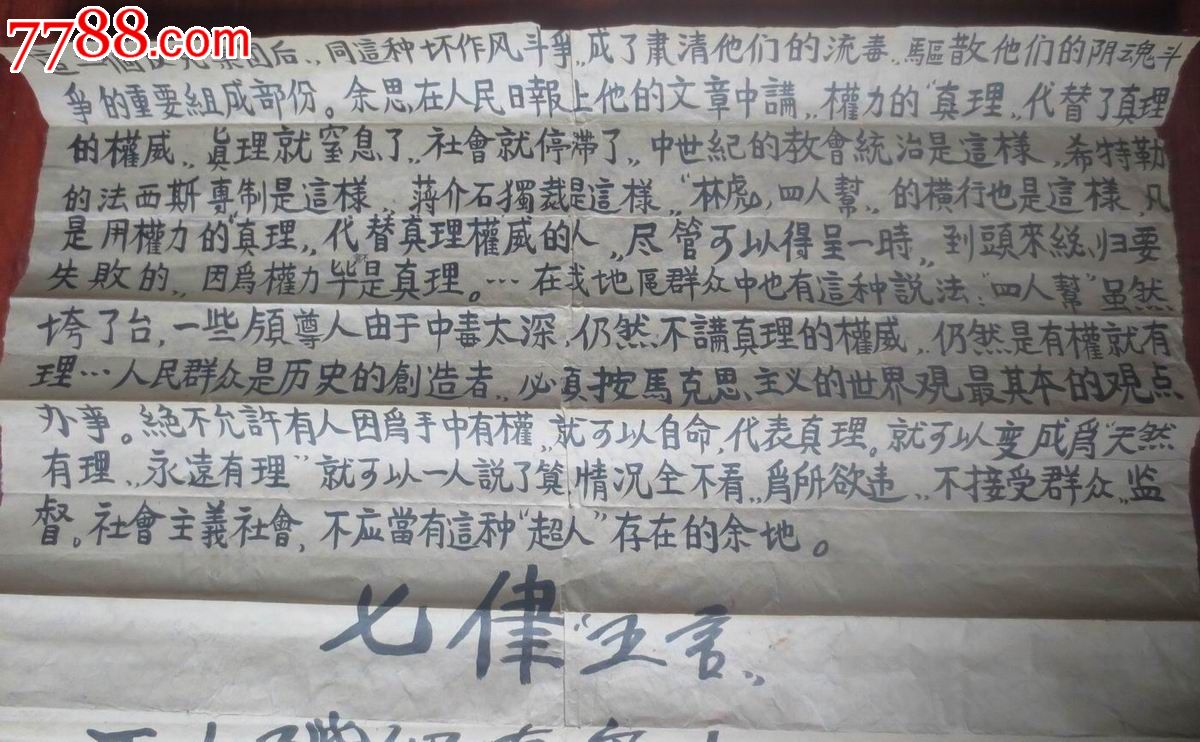 7788.com
中国收藏热线
后,,同這种坏作风斗爭,,成了肅清他们的流毒,,驅散他们的阴魂斗
爭的重要組成部份。余思,在人民日報上他的文章中講,,權力的“真理,,代替了真理
的權威,,眞理就窒息了,,社會就停滯了,,中世紀的教會統治是這樣,,希特勒
的法西斯專制是這樣,,蔣介石獨裁是這樣,,“林彪,四人幫,,的横行也是這樣,凡
是用權力的“真理,,代替真理權威的人,,尽管可以得呈一時,,到頭來総归要
失敗的,,因爲權力毕是真理。…在我地區群众中也有這种説法:“四人幫”虽然
垮了台,一些領導人由于中毒太深,仍然不講真理的權威,,仍然是有權就有
理…人民群众是历史的創造者,,必須按馬克思主义的世界觀,最其本的观点
办事。絕不允許有人因爲手中有權,,就可以自命,代表真理。就可以变成爲“天然
有理,,永遠有理”就可以一人説了算,情况全不看,,爲所欲违,,不接受群众,,监
督。社會主義社會,不应當有這种“超人”存在的余地。
七律“王言,,